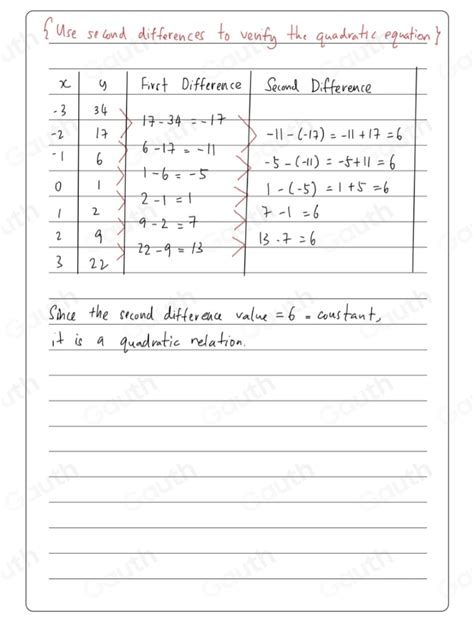 {Use second differences to verify the quadratic equation}
x y First Difference Second Difference
-3 34
17-34 = -17
-2 17 -11-(-17) = -11+17 = 6
6-17 = -11
-1 6 -5-(-11) = -5+11 = 6
1-6 = -5
0 1 1-(-5) = 1+5 = 6
2-1 = 1
1 2 7-1 = 6
9-2 = 7
2 9 13-7 = 6
22-9 = 13
3 22
Since the second difference value = 6 = constant,
it is a quadratic relation.
Gauth